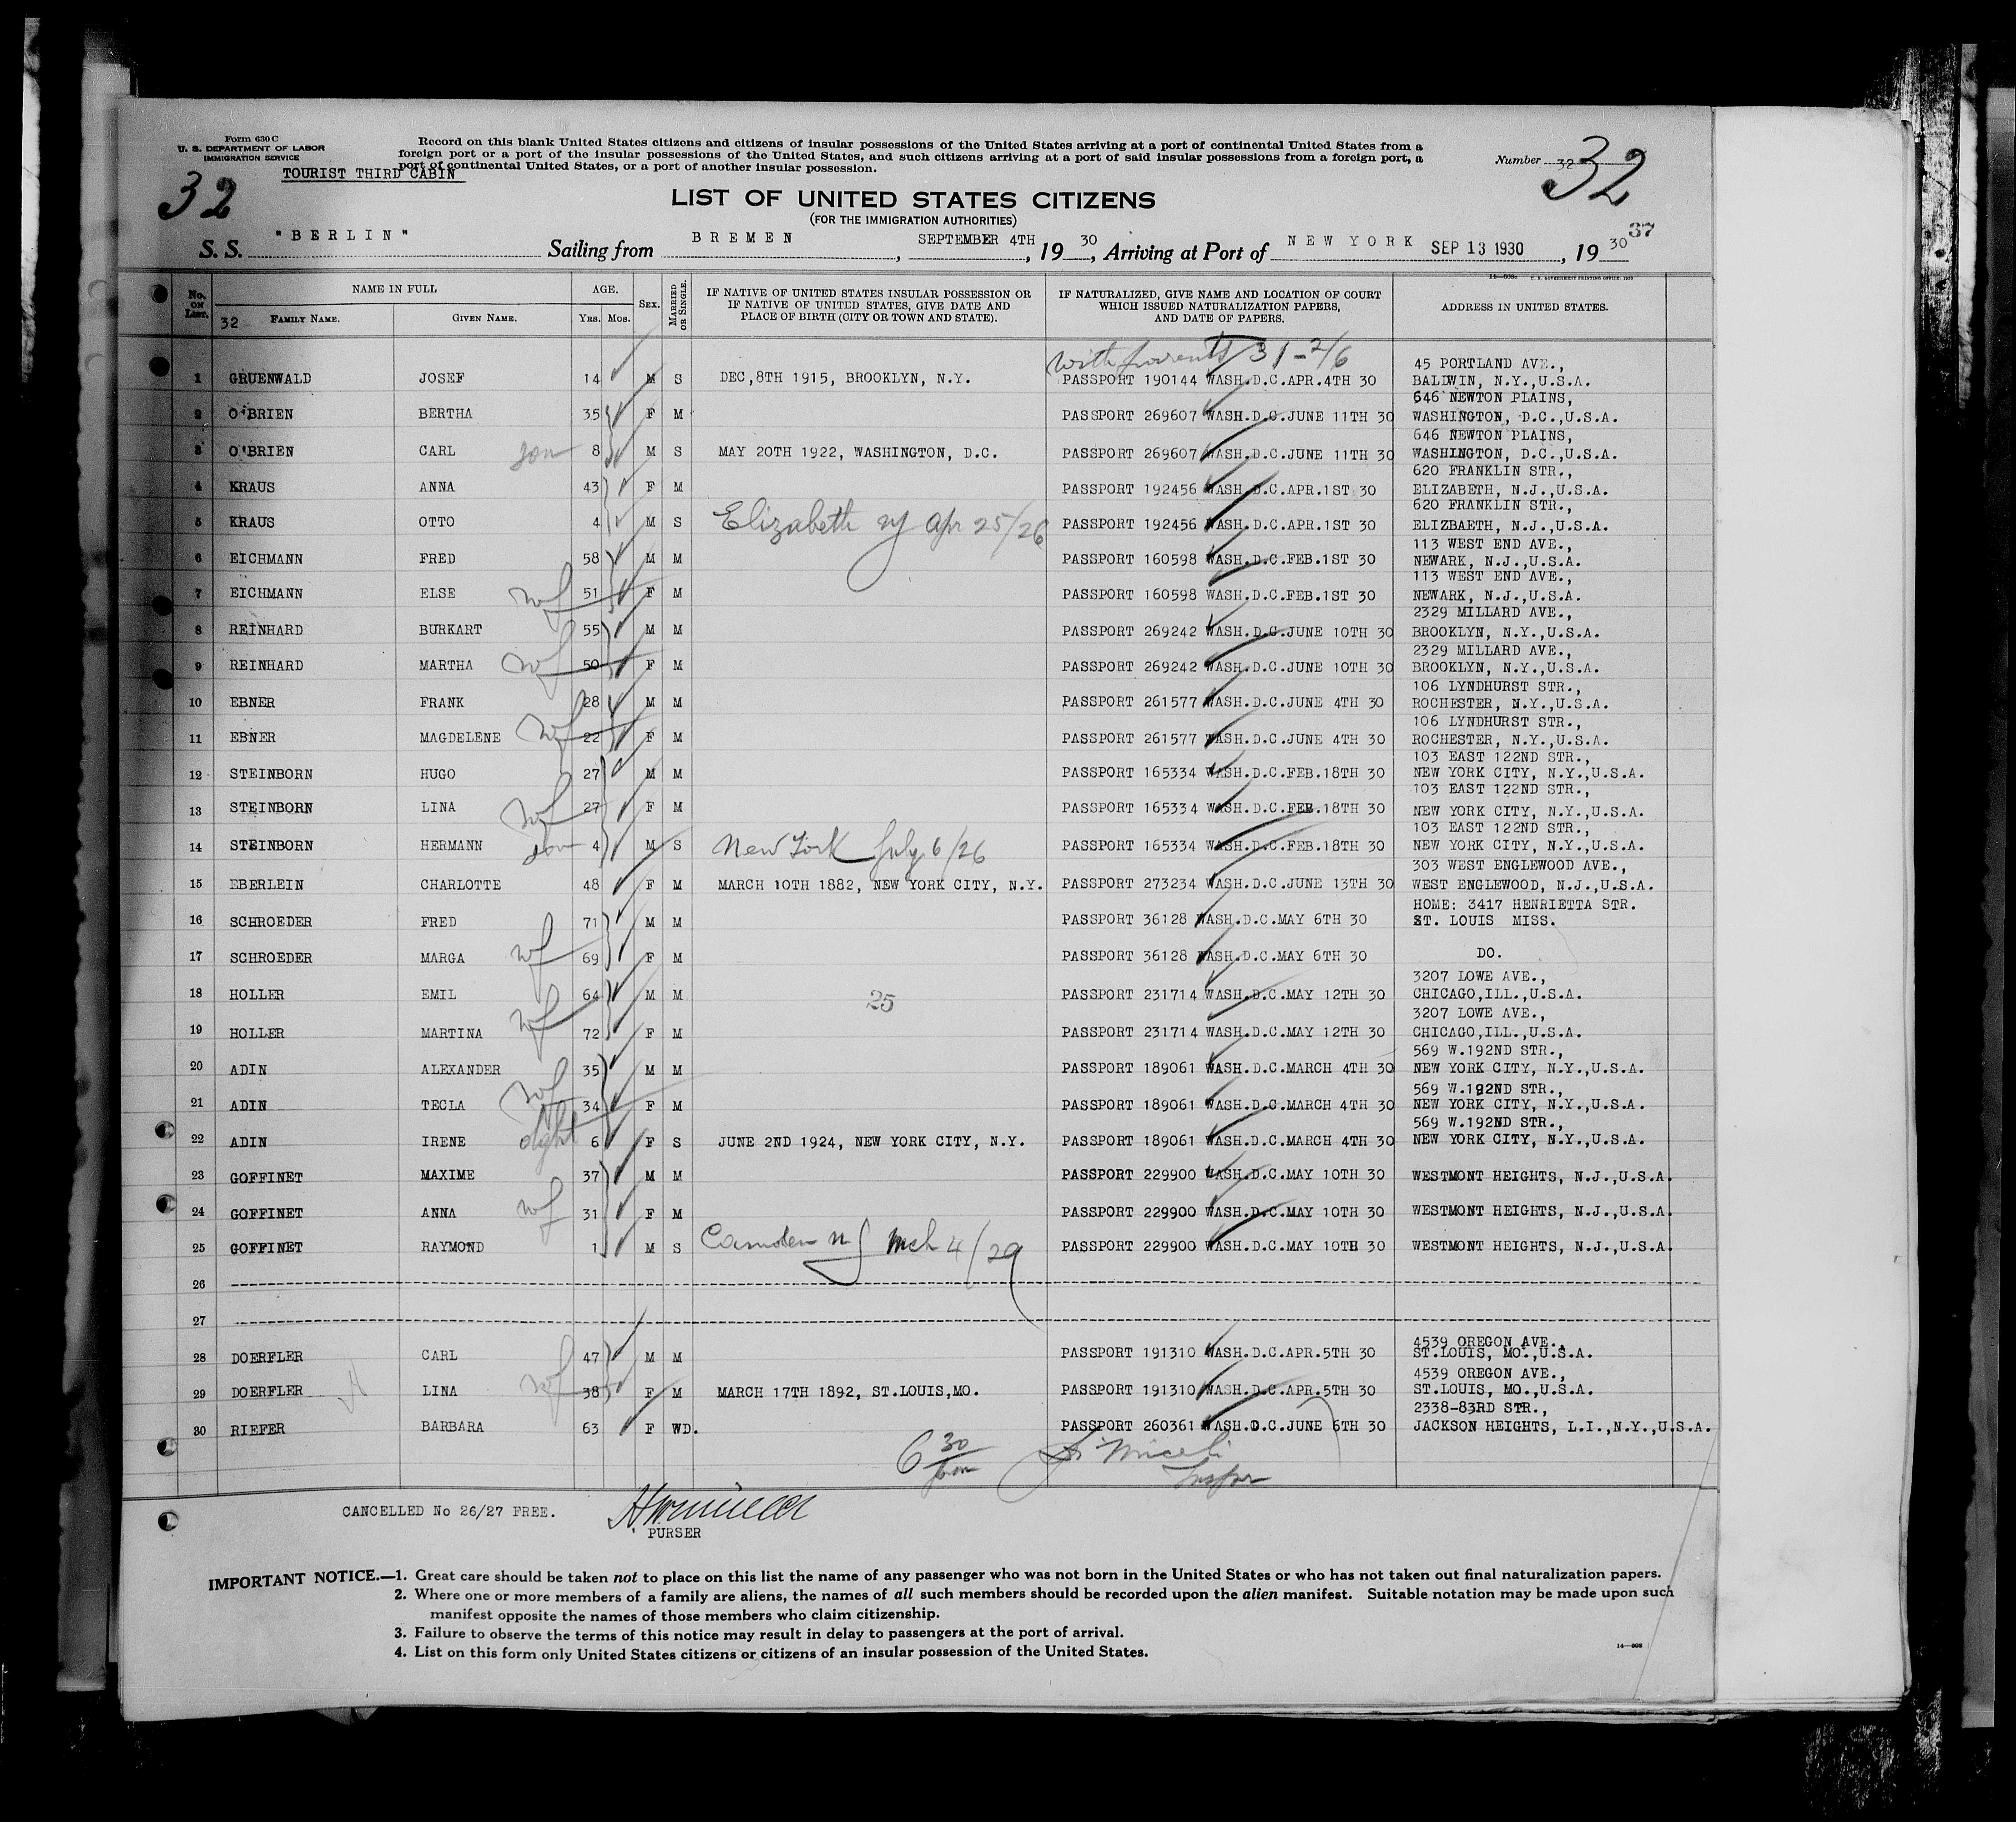 Form 630 C
U. S. DEPARTMENT OF LABOR
IMMIGRATION SERVICE
TOURIST THIRD CABIN
32
Record on this blank United States citizens and citizens of insular possessions of the United States arriving at a port of continental United States from a
foreign port or a port of the insular possessions of the United States, and such citizens arriving at a port of said insular possessions from a foreign port, a
port of continental United States, or a port of another insular possession.
Number 32
32
LIST OF UNITED STATES CITIZENS
(FOR THE IMMIGRATION AUTHORITIES)
37
S. S. "BERLIN" Sailing from BREMEN, SEPTEMBER 4TH, 1930, Arriving at Port of NEW YORK SEP 13 1930, 1930
No. ON LIST. NAME IN FULL AGE. SEX. MARRIED OR SINGLE. IF NATIVE OF UNITED STATES INSULAR POSSESSION OR IF NATIVE OF UNITED STATES, GIVE DATE AND PLACE OF BIRTH (CITY OR TOWN AND STATE). IF NATURALIZED, GIVE NAME AND LOCATION OF COURT WHICH ISSUED NATURALIZATION PAPERS, AND DATE OF PAPERS. ADDRESS IN UNITED STATES.
32 FAMILY NAME. GIVEN NAME. YRS. MOS.
with parents 31-2/6
1 GRUENWALD JOSEF 14 M S DEC,8TH 1915, BROOKLYN, N.Y. PASSPORT 190144 WASH.D.C.APR.4TH 30 45 PORTLAND AVE., BALDWIN, N.Y.,U.S.A.
2 O'BRIEN BERTHA 35 F M PASSPORT 269607 WASH.D.C.JUNE 11TH 30 646 NEWTON PLAINS, WASHINGTON, D.C.,U.S.A.
3 O'BRIEN CARL son 8 M S MAY 20TH 1922, WASHINGTON, D.C. PASSPORT 269607 WASH.D.C.JUNE 11TH 30 646 NEWTON PLAINS, WASHINGTON, D.C.,U.S.A.
4 KRAUS ANNA 43 F M PASSPORT 192456 WASH.D.C.APR.1ST 30 620 FRANKLIN STR., ELIZABETH, N.J.,U.S.A.
5 KRAUS OTTO 4 M S Elizabeth NJ Apr 25/26 PASSPORT 192456 WASH.D.C.APR.1ST 30 620 FRANKLIN STR., ELIZBAETH, N.J.,U.S.A.
6 EICHMANN FRED 58 M M PASSPORT 160598 WASH.D.C.FEB.1ST 30 113 WEST END AVE., NEWARK, N.J.,U.S.A.
7 EICHMANN ELSE wf 51 F M PASSPORT 160598 WASH.D.C.FEB.1ST 30 113 WEST END AVE., NEWARK, N.J.,U.S.A.
8 REINHARD BURKART 55 M M PASSPORT 269242 WASH.D.C.JUNE 10TH 30 2329 MILLARD AVE., BROOKLYN, N.Y.,U.S.A.
9 REINHARD MARTHA wf 50 F M PASSPORT 269242 WASH.D.C.JUNE 10TH 30 2329 MILLARD AVE., BROOKLYN, N.Y.,U.S.A.
10 EBNER FRANK 28 M M PASSPORT 261577 WASH.D.C.JUNE 4TH 30 106 LYNDHURST STR., ROCHESTER, N.Y.,U.S.A.
11 EBNER MAGDELENE wf 22 F M PASSPORT 261577 WASH.D.C.JUNE 4TH 30 106 LYNDHURST STR., ROCHESTER, N.Y.,U.S.A.
12 STEINBORN HUGO 27 M M PASSPORT 165334 WASH.D.C.FEB.18TH 30 103 EAST 122ND STR., NEW YORK CITY, N.Y.,U.S.A.
13 STEINBORN LINA wf 27 F M PASSPORT 165334 WASH.D.C.FEB.18TH 30 103 EAST 122ND STR., NEW YORK CITY, N.Y.,U.S.A.
14 STEINBORN HERMANN son 4 M S New York July 6/26 PASSPORT 165334 WASH.D.C.FEB.18TH 30 103 EAST 122ND STR., NEW YORK CITY, N.Y.,U.S.A.
15 EBERLEIN CHARLOTTE 48 F M MARCH 10TH 1882, NEW YORK CITY, N.Y. PASSPORT 273234 WASH.D.C.JUNE 13TH 30 303 WEST ENGLEWOOD AVE., WEST ENGLEWOOD, N.J.,U.S.A.
16 SCHROEDER FRED 71 M M PASSPORT 36128 WASH.D.C.MAY 6TH 30 HOME: 3417 HENRIETTA STR. ST. LOUIS MISS.
17 SCHROEDER MARGA wf 69 F M PASSPORT 36128 WASH.D.C.MAY 6TH 30 DO.
18 HOLLER EMIL 64 M M 25 PASSPORT 231714 WASH.D.C.MAY 12TH 30 3207 LOWE AVE., CHICAGO,ILL.,U.S.A.
19 HOLLER MARTINA wf 72 F M PASSPORT 231714 WASH.D.C.MAY 12TH 30 3207 LOWE AVE., CHICAGO,ILL.,U.S.A.
20 ADIN ALEXANDER 35 M M PASSPORT 189061 WASH.D.C.MARCH 4TH 30 569 W.192ND STR., NEW YORK CITY, N.Y.,U.S.A.
21 ADIN TECLA wf 34 F M PASSPORT 189061 WASH.D.C.MARCH 4TH 30 569 W.192ND STR., NEW YORK CITY, N.Y.,U.S.A.
22 ADIN IRENE dght 6 F S JUNE 2ND 1924, NEW YORK CITY, N.Y. PASSPORT 189061 WASH.D.C.MARCH 4TH 30 569 W.192ND STR., NEW YORK CITY, N.Y.,U.S.A.
23 GOFFINET MAXIME 37 M M PASSPORT 229900 WASH.D.C.MAY 10TH 30 WESTMONT HEIGHTS, N.J.,U.S.A.
24 GOFFINET ANNA wf 31 F M PASSPORT 229900 WASH.D.C.MAY 10TH 30 WESTMONT HEIGHTS, N.J.,U.S.A.
25 GOFFINET RAYMOND 1 M S Camden NJ Mch 4/29 PASSPORT 229900 WASH.D.C.MAY 10TH 30 WESTMONT HEIGHTS, N.J.,U.S.A.
26
27
28 DOERFLER CARL 47 M M PASSPORT 191310 WASH.D.C.APR.5TH 30 4539 OREGON AVE., ST.LOUIS, MO.,U.S.A.
29 DOERFLER LINA wf 38 F M MARCH 17TH 1892, ST.LOUIS,MO. PASSPORT 191310 WASH.D.C.APR.5TH 30 4539 OREGON AVE., ST.LOUIS, MO.,U.S.A.
30 RIEFER BARBARA 63 F WD. PASSPORT 260361 WASH.D.C.JUNE 6TH 30 2338-83RD STR., JACKSON HEIGHTS, L.I.,N.Y.,U.S.A.
6 30 Miceli
Inspr
CANCELLED No 26/27 FREE.
PURSER
IMPORTANT NOTICE.—1. Great care should be taken not to place on this list the name of any passenger who was not born in the United States or who has not taken out final naturalization papers.
2. Where one or more members of a family are aliens, the names of all such members should be recorded upon the alien manifest. Suitable notation may be made upon such
manifest opposite the names of those members who claim citizenship.
3. Failure to observe the terms of this notice may result in delay to passengers at the port of arrival.
4. List on this form only United States citizens or citizens of an insular possession of the United States.